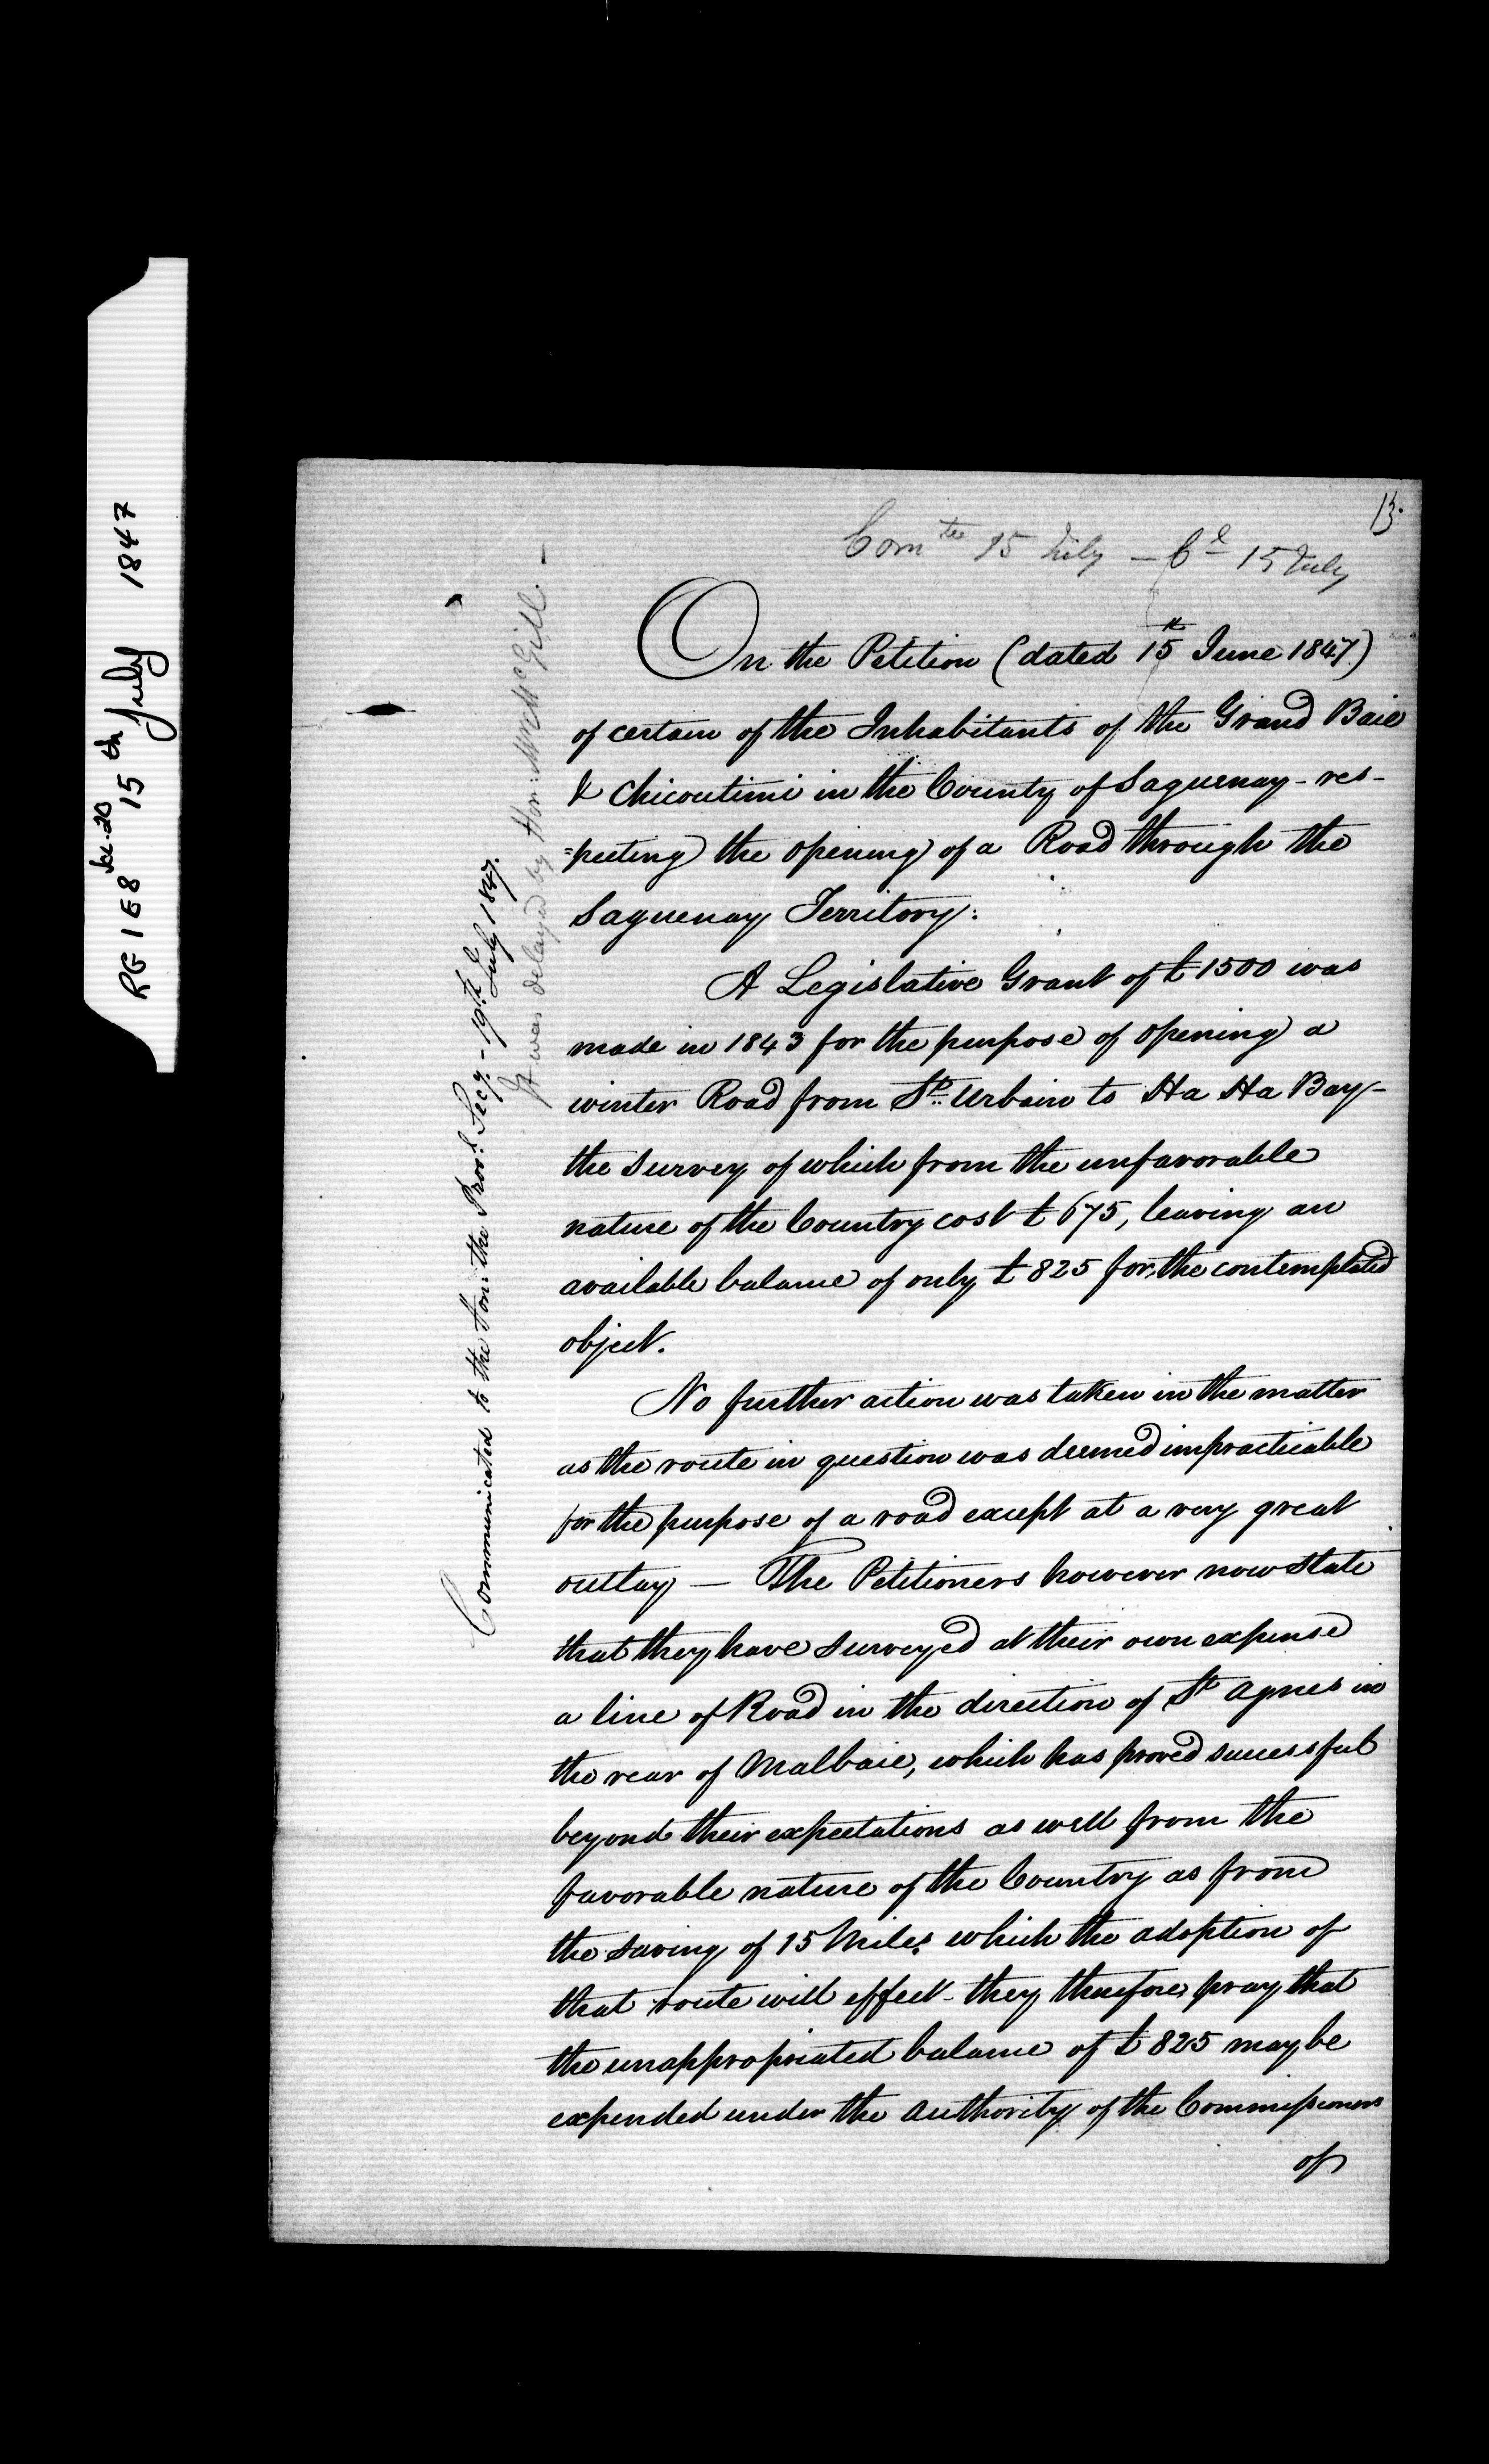 RG 1 E8 15th July 1847
13.
Comtee 15 July — Cl 15 July
On the Petition (dated 15th June 1847)
of certain of the Inhabitants of the Grand Baie
& Chicoutimi in the County of Saguenay - res-
=pecting the opening of a Road through the
Saguenay Territory:
A Legislative Grant of £1500 was
made in 1843 for the purpose of opening a
winter Road from St. Urbain to Ha Ha Bay -
the survey of which from the unfavorable
nature of the Country cost £675, leaving an
available balance of only £825 for the contemplated
object.
No further action was taken in the matter
as the route in question was deemed impracticable
for the purpose of a road except at a very great
outlay — The Petitioners however now state
that they have surveyed at their own expense
a line of Road in the direction of St Agnes in
the rear of Malbaie, which has proved successful
beyond their expectations as well from the
favorable nature of the Country as from
the saving of 15 Miles which the adoption of
that route will effect - they therefore pray that
the unappropriated balance of £825 may be
expended under the authority of the Commissioners
of
Communicated to the Hon: the Provl. Secy. - 19th July 1847.
It was delayed by Hon: Mr McGill. -